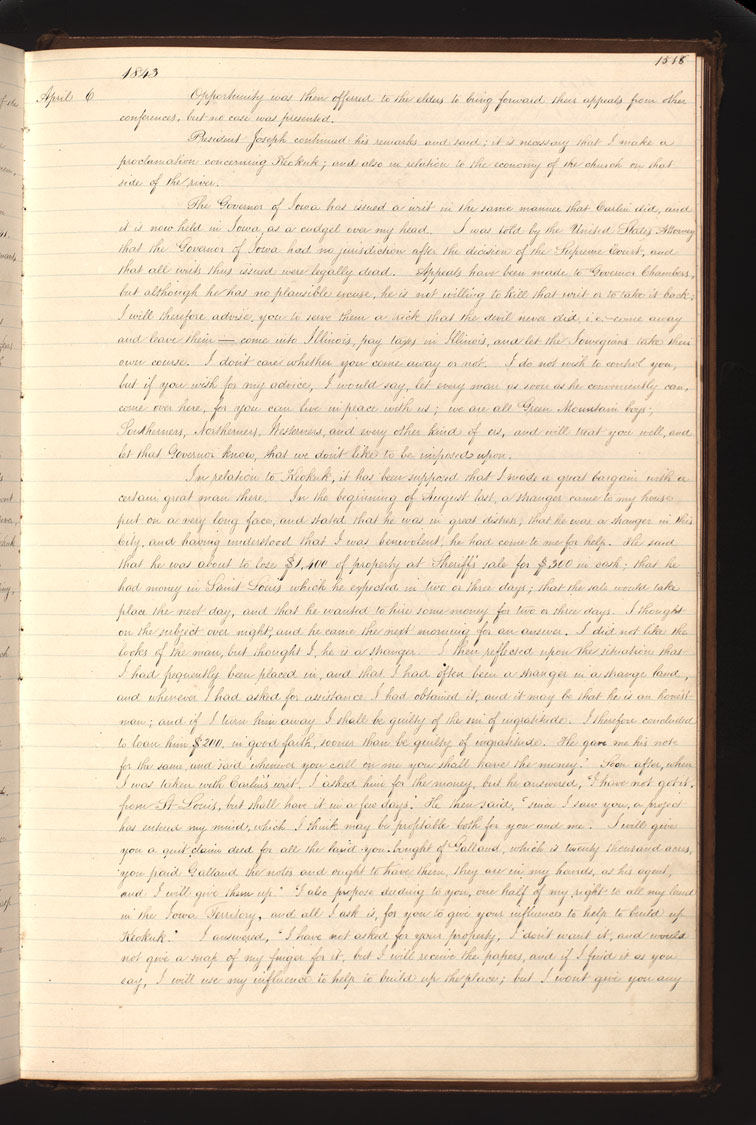 1518
1843
April 6 Opportunity was then offered to the elders to bring forward their appeals from other
conferences, but no case was presented.
President Joseph continued his remarks and said; it is necessary that I make a
proclamation concerning Keokuk; and also in relation to the economy of the church on that
side of the river.
The Governor of Iowa has issued a writ in the same manner that Carlin did, and
it is now held in Iowa, as a cudgel over my head. I was told by the United States Attorney
that the Governor of Iowa had no jurisdiction after the decision of the Supreme Court, and
that all writs thus issued were legally dead. Appeals have been made to Governor Chambers,
but although he has no plausible excuse, he is not willing to kill that writ or to take it back;
I will therefore advise, you to serve them a trick that the devil never did, i.e. come away
and leave them — come into Illinois, pay taxes in Illinois, and let the Iowegians take their
own course. I don't care whether you come away or not. I do not wish to control you,
but if you wish for my advice, I would say, let every man as soon as he conveniently can,
come over here, for you can live in peace with us; we are all Green Mountain boys;
Southerners, Northerners, Westerners, and every other kind of ers, and will treat you well, and
let that Governor know, that we don't like to be imposed upon.
In relation to Keokuk, it has been supposed that I made a great bargain with a
certain great man there. In the beginning of August last, a stranger came to my house,
put on a very long face, and stated that he was in great distress; that he was a stranger in this
City, and having understood that I was benevolent, he had come to me for help. He said
that he was about to lose $1,400 of property at Sheriff's sale for $300 in cash; that he
had money in Saint Louis which he expected in two or three days; that the sale would take
place the next day, and that he wanted to hire some money for two or three days. I thought
on the subject over night, and he came the next morning for an answer. I did not like the
looks of the man, but thought I, he is a stranger. I then reflected upon the situation that
I had frequently been placed in, and that I had often been a stranger in a strange land,
and whenever I had asked for assistance I had obtained it, and it may be that he is an honest
man; and if I turn him away I shall be guilty of the sin of ingratitude. I therefore concluded
to loan him $200, in good faith, sooner than be guilty of ingratitude. He gave me his note
for the same, and said "whenever you call on me you shall have the money." Soon after, when
I was taken with Carlin's writ, I asked him for the money, but he answered, "I have not got it,
from St Louis, but shall have it in a few days." He then said, "since I saw you, a project
has entered my mind, which I think may be profitable both for you and me. I will give
you a quit claim deed for all the land you bought of Galland, which is twenty thousand acres,
you paid Galland the notes and ought to have them, they are in my hands, as his agent,
and I will give them up." "I also propose deeding to you, one half of my right to all my land
in the Iowa Territory, and all I ask is, for you to give your influence to help to build up
Keokuk." I answered, "I have not asked for your property, I don't want it, and would
not give a snap of my finger for it, but I will receive the papers, and if I find it as you
say, I will use my influence to help to build up the place; but I won't give you any